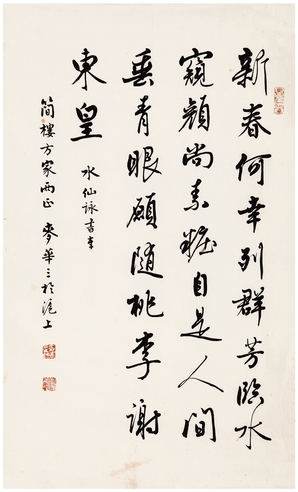 新春何幸列群芳臨水
窺顏尚素糚自是人間
垂青眼願隨桃李謝
東皇
水仙詠書奉
簡樓方家兩正 麥華三於滬上